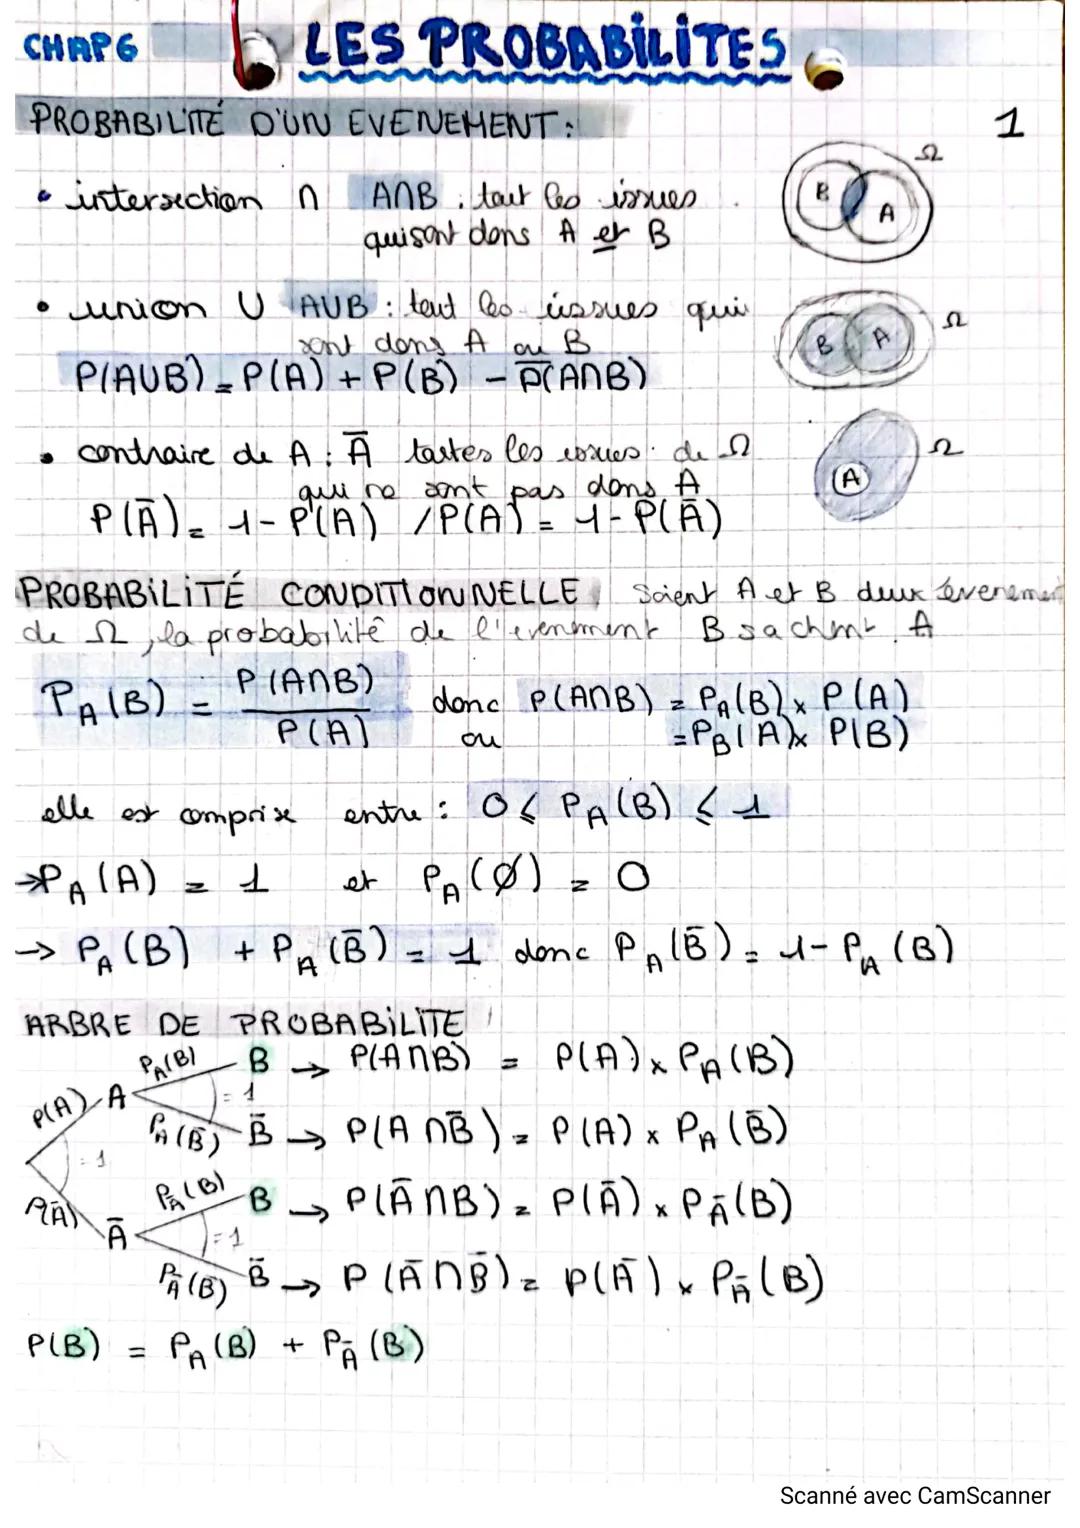 CHAP6
LES PROBABILITES
PROBABILITÉ D'UN EVENEMENT :
1
• intersection ∩ A∩B : tout les issues
qui sont dans A et B
B A Ω
• union U AUB : tout les issues qui
sont dans A ou B
P(AUB) = P(A) + P(B) - P(A∩B)
B A Ω
• contraire de A : Ā toutes les issues de Ω
qui ne sont pas dans A
P(Ā) = 1 - P(A) / P(A) = 1 - P(Ā)
A Ω
PROBABILITÉ CONDITIONNELLE Soient A et B deux évenemen
de Ω, la probabilité de l'evenment B sachant A
P_A(B) = P(A∩B) / P(A) donc P(A∩B) = P_A(B) × P(A)
ou = P_B(A) × P(B)
elle est comprise entre : 0 ⩽ P_A(B) ⩽ 1
→ P_A(A) = 1 et P_A(Ø) = 0
→ P_A(B) + P_A(B̄) = 1 donc P_A(B̄) = 1 - P_A(B)
ARBRE DE PROBABILITE
P(A) A P_A(B) B → P(A∩B) = P(A) × P_A(B)
= 1
P_A(B̄) B̄ → P(A∩B̄) = P(A) × P_A(B̄)
= 1
P(Ā) Ā P_Ā(B) B → P(Ā∩B) = P(Ā) × P_Ā(B)
= 1
P_Ā(B̄) B̄ → P(Ā∩B̄) = P(Ā) × P_Ā(B)
P(B) = P_A(B) + P_Ā(B)
Scanné avec CamScanner